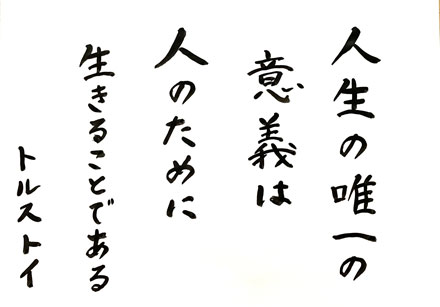 人生の唯一の
意義は
人のために
生きることである
トルストイ